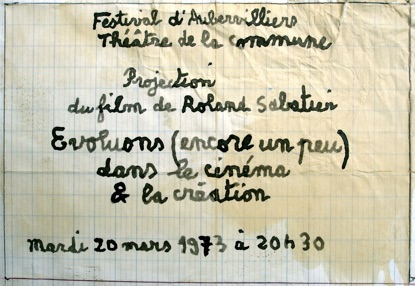 Festival d'Aubervilliers
Théâtre de la commune
Projection
du film de Roland Sabatier
Evoluons (encore un peu)
dans le cinéma
& la création
Mardi 20 mars 1973 à 20h30